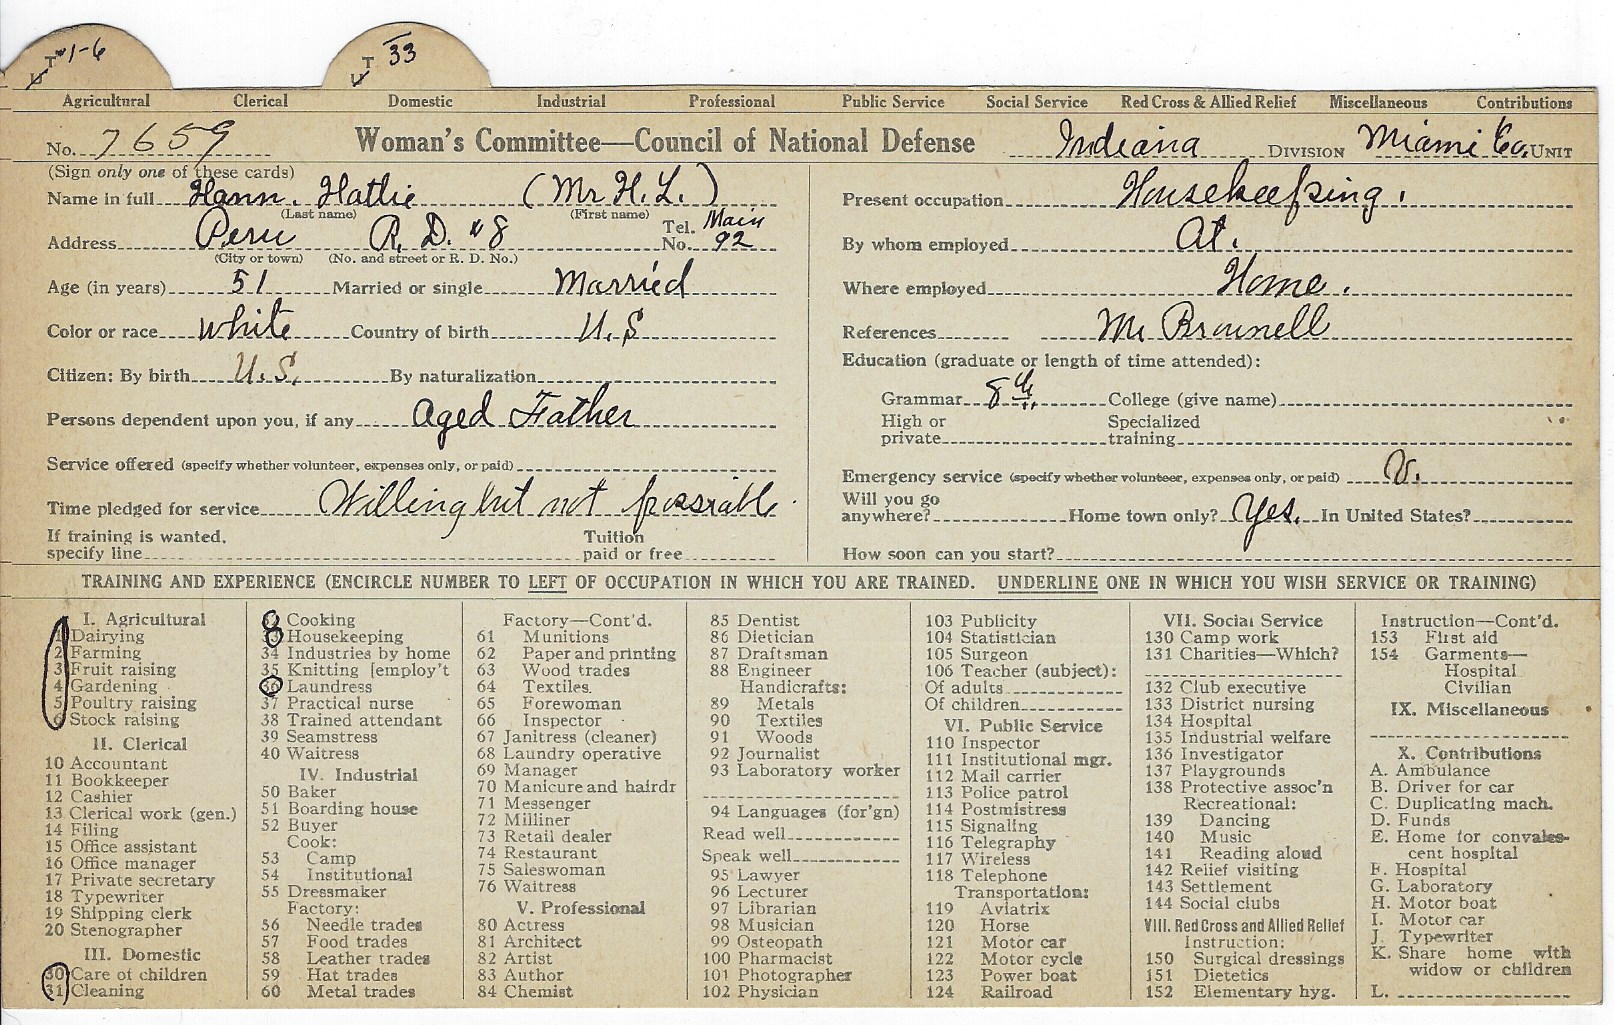 UT #1-6
UT 33
Agricultural Clerical Domestic Industrial Professional Public Service Social Service Red Cross & Allied Relief Miscellaneous Contributions
No. 7659 Woman's Committee—Council of National Defense Indiana DIVISION Miami Co. UNIT
(Sign only one of these cards)
Name in full Hann. Hattie (Mr H. L.)
(Last name) (First name)
Address Peru R. D. #8 Tel. No. Main 92
(City or town) (No. and street or R. D. No.)
Age (in years) 51 Married or single Married
Color or race White Country of birth U.S
Citizen: By birth U.S. By naturalization
Persons dependent upon you, if any Aged Father
Service offered (specify whether volunteer, expenses only, or paid)
Time pledged for service Willing but not possiable.
If training is wanted, specify line Tuition paid or free
Present occupation Housekeepsing.
By whom employed At.
Where employed Home.
References Mr Brownell
Education (graduate or length of time attended):
Grammar 8th College (give name)
High or private Specialized training
Emergency service (specify whether volunteer, expenses only, or paid) V.
Will you go anywhere? Home town only? Yes. In United States?
How soon can you start?
TRAINING AND EXPERIENCE (ENCIRCLE NUMBER TO LEFT OF OCCUPATION IN WHICH YOU ARE TRAINED. UNDERLINE ONE IN WHICH YOU WISH SERVICE OR TRAINING)
I. Agricultural
1 Dairying
2 Farming
3 Fruit raising
4 Gardening
5 Poultry raising
6 Stock raising
II. Clerical
10 Accountant
11 Bookkeeper
12 Cashier
13 Clerical work (gen.)
14 Filing
15 Office assistant
16 Office manager
17 Private secretary
18 Typewriter
19 Shipping clerk
20 Stenographer
III. Domestic
30 Care of children
31 Cleaning
Cooking
33 Housekeeping
34 Industries by home
35 Knitting [employ't
36 Laundress
37 Practical nurse
38 Trained attendant
39 Seamstress
40 Waitress
IV. Industrial
50 Baker
51 Boarding house
52 Buyer
Cook:
53 Camp
54 Institutional
55 Dressmaker
Factory:
56 Needle trades
57 Food trades
58 Leather trades
59 Hat trades
60 Metal trades
Factory—Cont'd.
61 Munitions
62 Paper and printing
63 Wood trades
64 Textiles.
65 Forewoman
66 Inspector
67 Janitress (cleaner)
68 Laundry operative
69 Manager
70 Manicure and hairdr
71 Messenger
72 Milliner
73 Retail dealer
74 Restaurant
75 Saleswoman
76 Waitress
V. Professional
80 Actress
81 Architect
82 Artist
83 Author
84 Chemist
85 Dentist
86 Dietician
87 Draftsman
88 Engineer
Handicrafts:
89 Metals
90 Textiles
91 Woods
92 Journalist
93 Laboratory worker
94 Languages (for'gn)
Read well
Speak well
95 Lawyer
96 Lecturer
97 Librarian
98 Musician
99 Osteopath
100 Pharmacist
101 Photographer
102 Physician
103 Publicity
104 Statistician
105 Surgeon
106 Teacher (subject):
Of adults
Of children
VI. Public Service
110 Inspector
111 Institutional mgr.
112 Mail carrier
113 Police patrol
114 Postmistress
115 Signaling
116 Telegraphy
117 Wireless
118 Telephone
Transportation:
119 Aviatrix
120 Horse
121 Motor car
122 Motor cycle
123 Power boat
124 Railroad
VII. Social Service
130 Camp work
131 Charities—Which?
132 Club executive
133 District nursing
134 Hospital
135 Industrial welfare
136 Investigator
137 Playgrounds
138 Protective assoc'n
Recreational:
139 Dancing
140 Music
141 Reading aloud
142 Relief visiting
143 Settlement
144 Social clubs
VIII. Red Cross and Allied Relief
Instruction:
150 Surgical dressings
151 Dietetics
152 Elementary hyg.
Instruction—Cont'd.
153 First aid
154 Garments—
Hospital
Civilian
IX. Miscellaneous
X. Contributions
A. Ambulance
B. Driver for car
C. Duplicating mach.
D. Funds
E. Home for convales-
cent hospital
F. Hospital
G. Laboratory
H. Motor boat
I. Motor car
J. Typewriter
K. Share home with
widow or children
L.